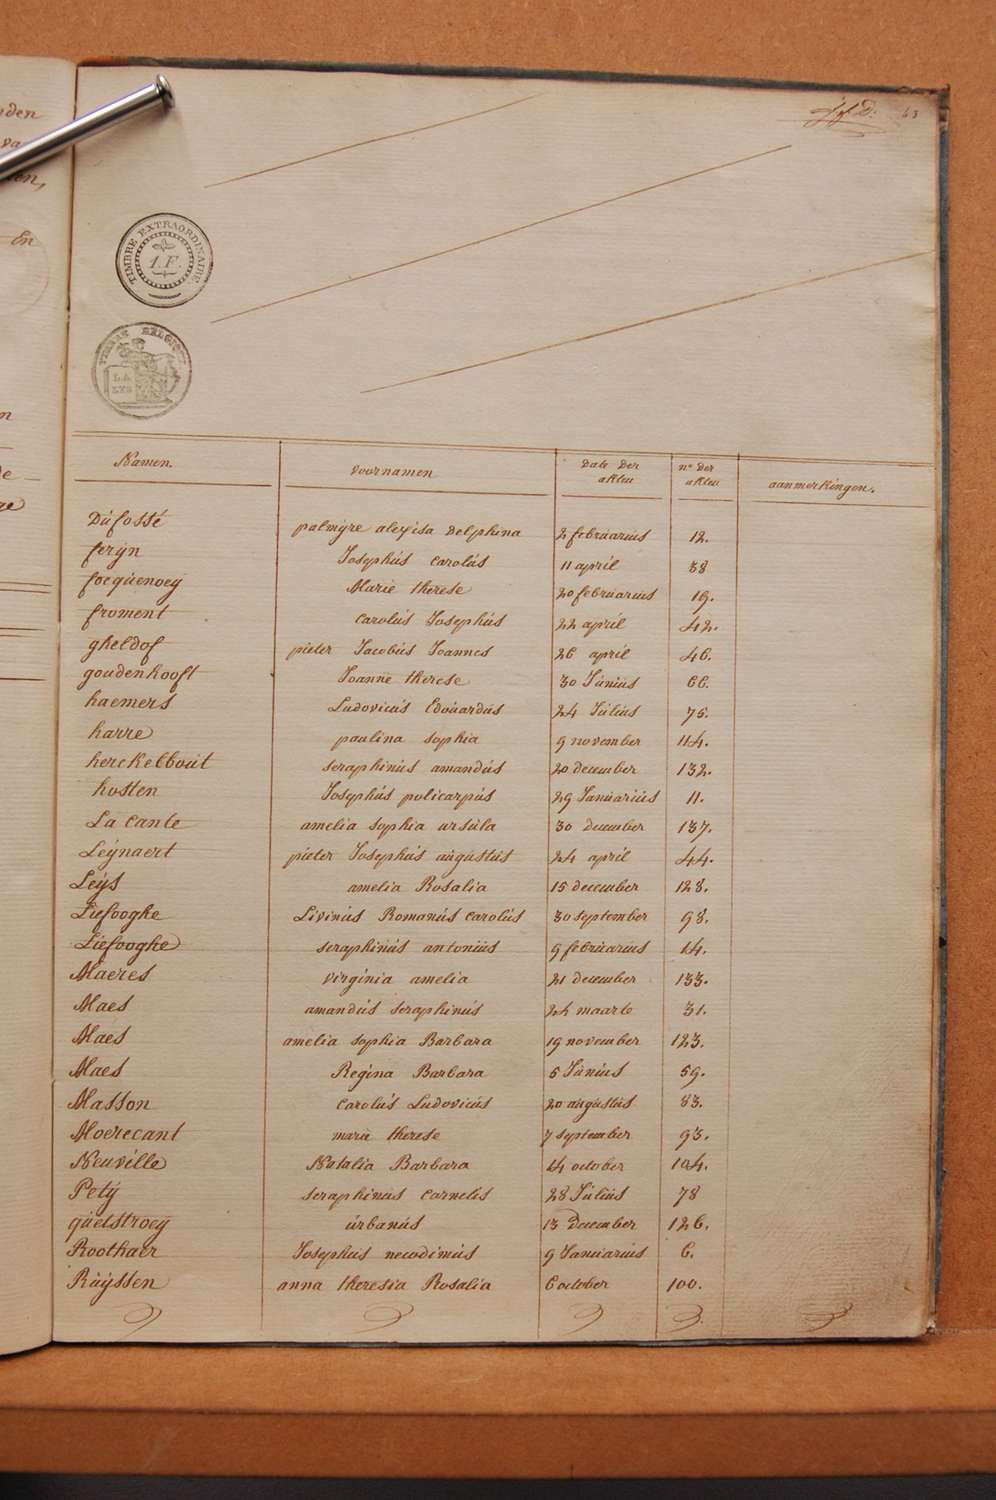 43
TIMBRE EXTRAORDINAIRE
1.F.
BELGIC
LA
LYS
Namen. voornamen date der akten n° der akten aanmerkingen.
Dufossé palmÿre alexisa delphina 2 februarius 12.
ferÿn Josephus carolus 11 april 38
focquenoeÿ Marie therese 20 februarius 19.
froment carolus Josephus 22 april 42.
gheldof pieter Jacobus Joannes 26 april 46.
goudenhooft Joanne therese 30 Junius 66.
haemers Ludovicus Edouardus 24 Julius 75.
harre paulina sophia 9 november 114.
herckelbout seraphinus amandus 20 december 132.
hosten Josephus policarpus 29 Januarius 11.
La cante amelia sophia ursula 30 december 137.
Leÿnaert pieter Josephus augustus 24 april 44.
Leÿs amelia Rosalia 15 december 128.
Liefooghe Livinus Romanus carolus 30 september 98.
Liefooghe seraphinus antonius 9 februarius 14.
Maeres virginia amelia 21 december 133.
Maes amandus seraphinus 25 maarte 31.
Maes amelia sophia Barbara 19 november 123.
Maes Regina Barbara 5 Junius 59.
Masson carolus Ludovicus 20 augustus 83.
Moerecant marie therese 7 september 93.
Neuville Natalia Barbara 14 october 104.
Petÿ seraphinus cornelis 28 Julius 78
quetstroeÿ urbanus 13 December 126.
Roothaer Josephus necodimus 9 Januarius 6.
Ruÿssen anna theresia Rosalia 6 october 100.